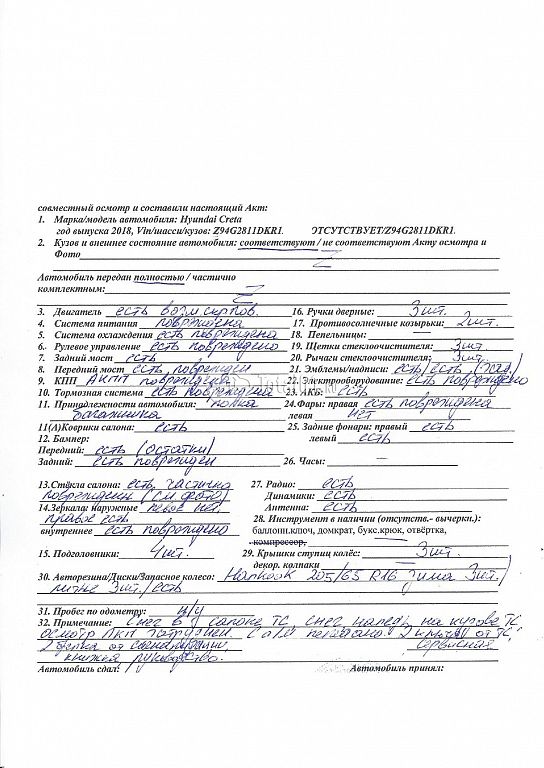 совместный осмотр и составили настоящий Акт:
1. Марка/модель автомобиля: Hyundai Creta
год выпуска 2018, Vin/шасси/кузов: Z94G2811DKR1 ОТСУТСТВУЕТ/Z94G2811DKR1
2. Кузов и внешнее состояние автомобиля: соответствуют / не соответствуют Акту осмотра и
Фото Z
Автомобиль передан полностью / частично
комплектным: Z
3. Двигатель есть возм. 16. Ручки дверные: 3 шт.
4. Система питания повреждена 17. Противосолнечные козырьки: 2 шт.
5. Система охлаждения есть повреждена 18. Пепельницы:
6. Рулевое управление есть повреждено 19. Щетки стеклоочистителя: 3 шт
7. Задний мост есть 20. Рычаги стеклоочистителя: 3 шт.
8. Передний мост есть, поврежден 21. Эмблемы/надписи: есть/есть (зад.)
9. КПП АКПП повреждена 22. Электрооборудование: есть повреждено
10. Тормозная система есть повреждена 23. АКБ: есть
11. Принадлежности автомобиля: полка 24. Фары: правая есть повреждена
багажника левая нет
11(А)Коврики салона: есть 25. Задние фонари: правый есть
12. Бампер: левый есть
Передний: есть (остатки)
Задний: есть поврежден 26. Часы: —
13.Стёкла салона: есть, частично 27. Радио: есть
повреждены (см фото) Динамики: есть
14.Зеркала: наружные левое нет, Антенна: есть
правое есть 28. Инструмент в наличии (отсутств.- вычеркн.):
внутреннее есть повреждено баллонн.ключ, домкрат, букс.крюк, отвёртка,
компрессор,
15. Подголовники: 4 шт. 29. Крышки ступиц колёс: 3 шт.
декор. колпаки
30. Авторезина/Диски/Запасное колесо: Hankook 205/65 R16 зима 3шт./
литые 3шт./есть
31. Пробег по одометру: н/у
32. Примечание: Снег в салоне ТС, снег наледь на кузове ТС
осмотр ЛКП затруднен. С а/м передано 2 ключа от ТС,
2 от сигнализации, сервисная
книжка, руководство.
Автомобиль сдал: Автомобиль принял: